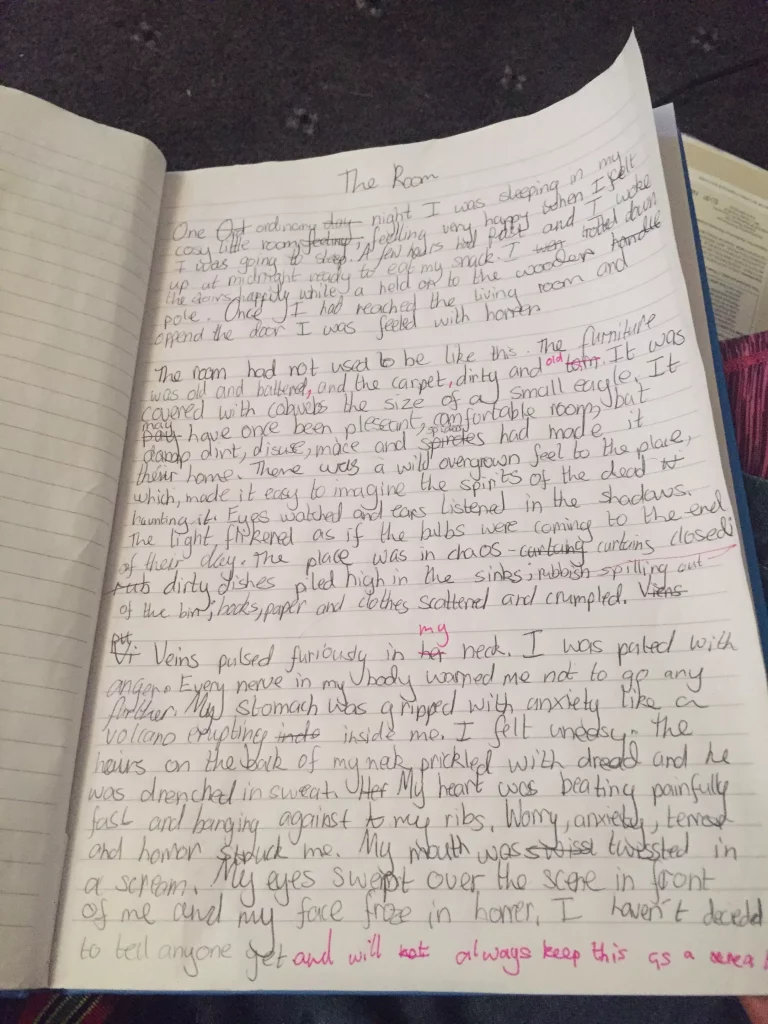 The Room
One ordinary day night I was sleeping in my
cosy little room, feelling very happy when I felt
I was going to sleep. A few hours had past and I woke
up at midnight ready to eat my snack. I trotted down
the stairs happily while, a held on to the wooden handle
pole. Once I had reached the living room and
oppend the door I was feeled with horrer.
The room had not used to be like this. The furniture
was old and battered, and the carpet, dirty and old torn. It was
covered with cobwebs the size of a small eagle. It
may have once been pleseant, comfortable room, but
damp dirt, disuse, mice and spiders had made it
their home. There was a wild overgrown feel to the place,
which, made it easy to imagine the spirits of the dead
haunting it. Eyes watched and ears listened in the shadows.
The light, flickered as if the bulbs were coming to the end
of their day. The place was in chaos - curtains closed;
dirty dishes piled high in the sinks; rubbish spilling out
of the bin; books, paper and clothes scattered and crumpled. Viens
Veins pulsed furiously in my her neck. I was pulsed with
anger. Every nerve in my body warned me not to go any
further. My stomach was gripped with anxiety like a
volcano erupting into inside me. I felt uneasy. The
hairs on the back of my neck prickled with dread and he
was drenched in sweat. Her My heart was beating painfully
fast and banging against to my ribs. Worry, anxiety, terror
and horror struck me. My mouth was twissted in
a scream. My eyes swept over the scene in front
of me and my face froze in horrer. I haven't deceded
to tell anyone yet and will not always keep this as a